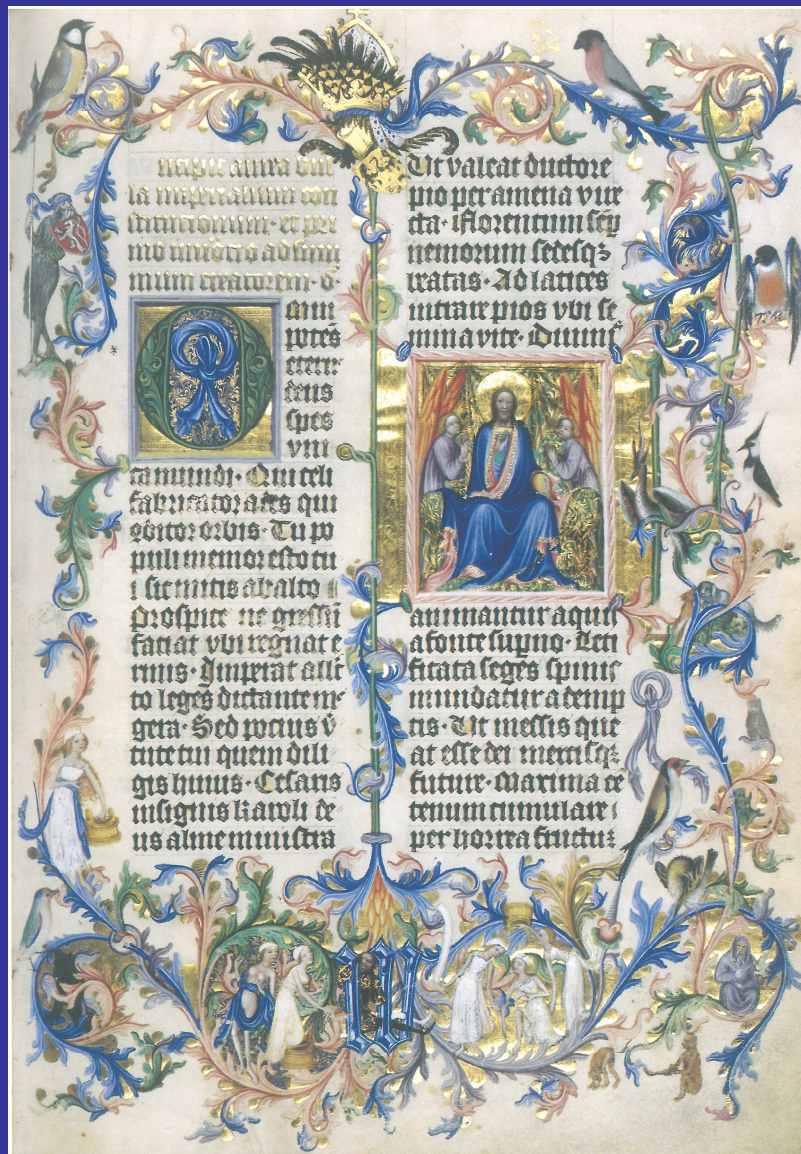 ncipit aurea bul
la imperialium con
stitucionum · et pri
mo inuocio ad sum
mum creatorem · o
mni
potēs
eterne
deus
spes
vni
ca mundi · Qui celi
fabricator ades qui
oditor orbis · Tu po
puli memor esto tu
i sic mitis ab alto
Prospice ne gressū
faciat vbi regnat e
rinis · Imperat alle
to leges dictante me
gera · Sed pocius v
tute tui quem dili
gis huius · Cesaris
insignis karoli de
us alme ministra
Ut valeat ductore
pio per amena vire
cta · Florentum sep
nemorum sedesqꝫ
beatas · Ad latices
intrare pios vbi se
mina vite · Diuinis
animantur aquis
a fonte supno · Leti
ficata seges spinis
mundatur ademp
tis · Ut messis que
at esse dei mercisqꝫ
future · Maxima ce
tenum cumulare
per horrea fructus
W